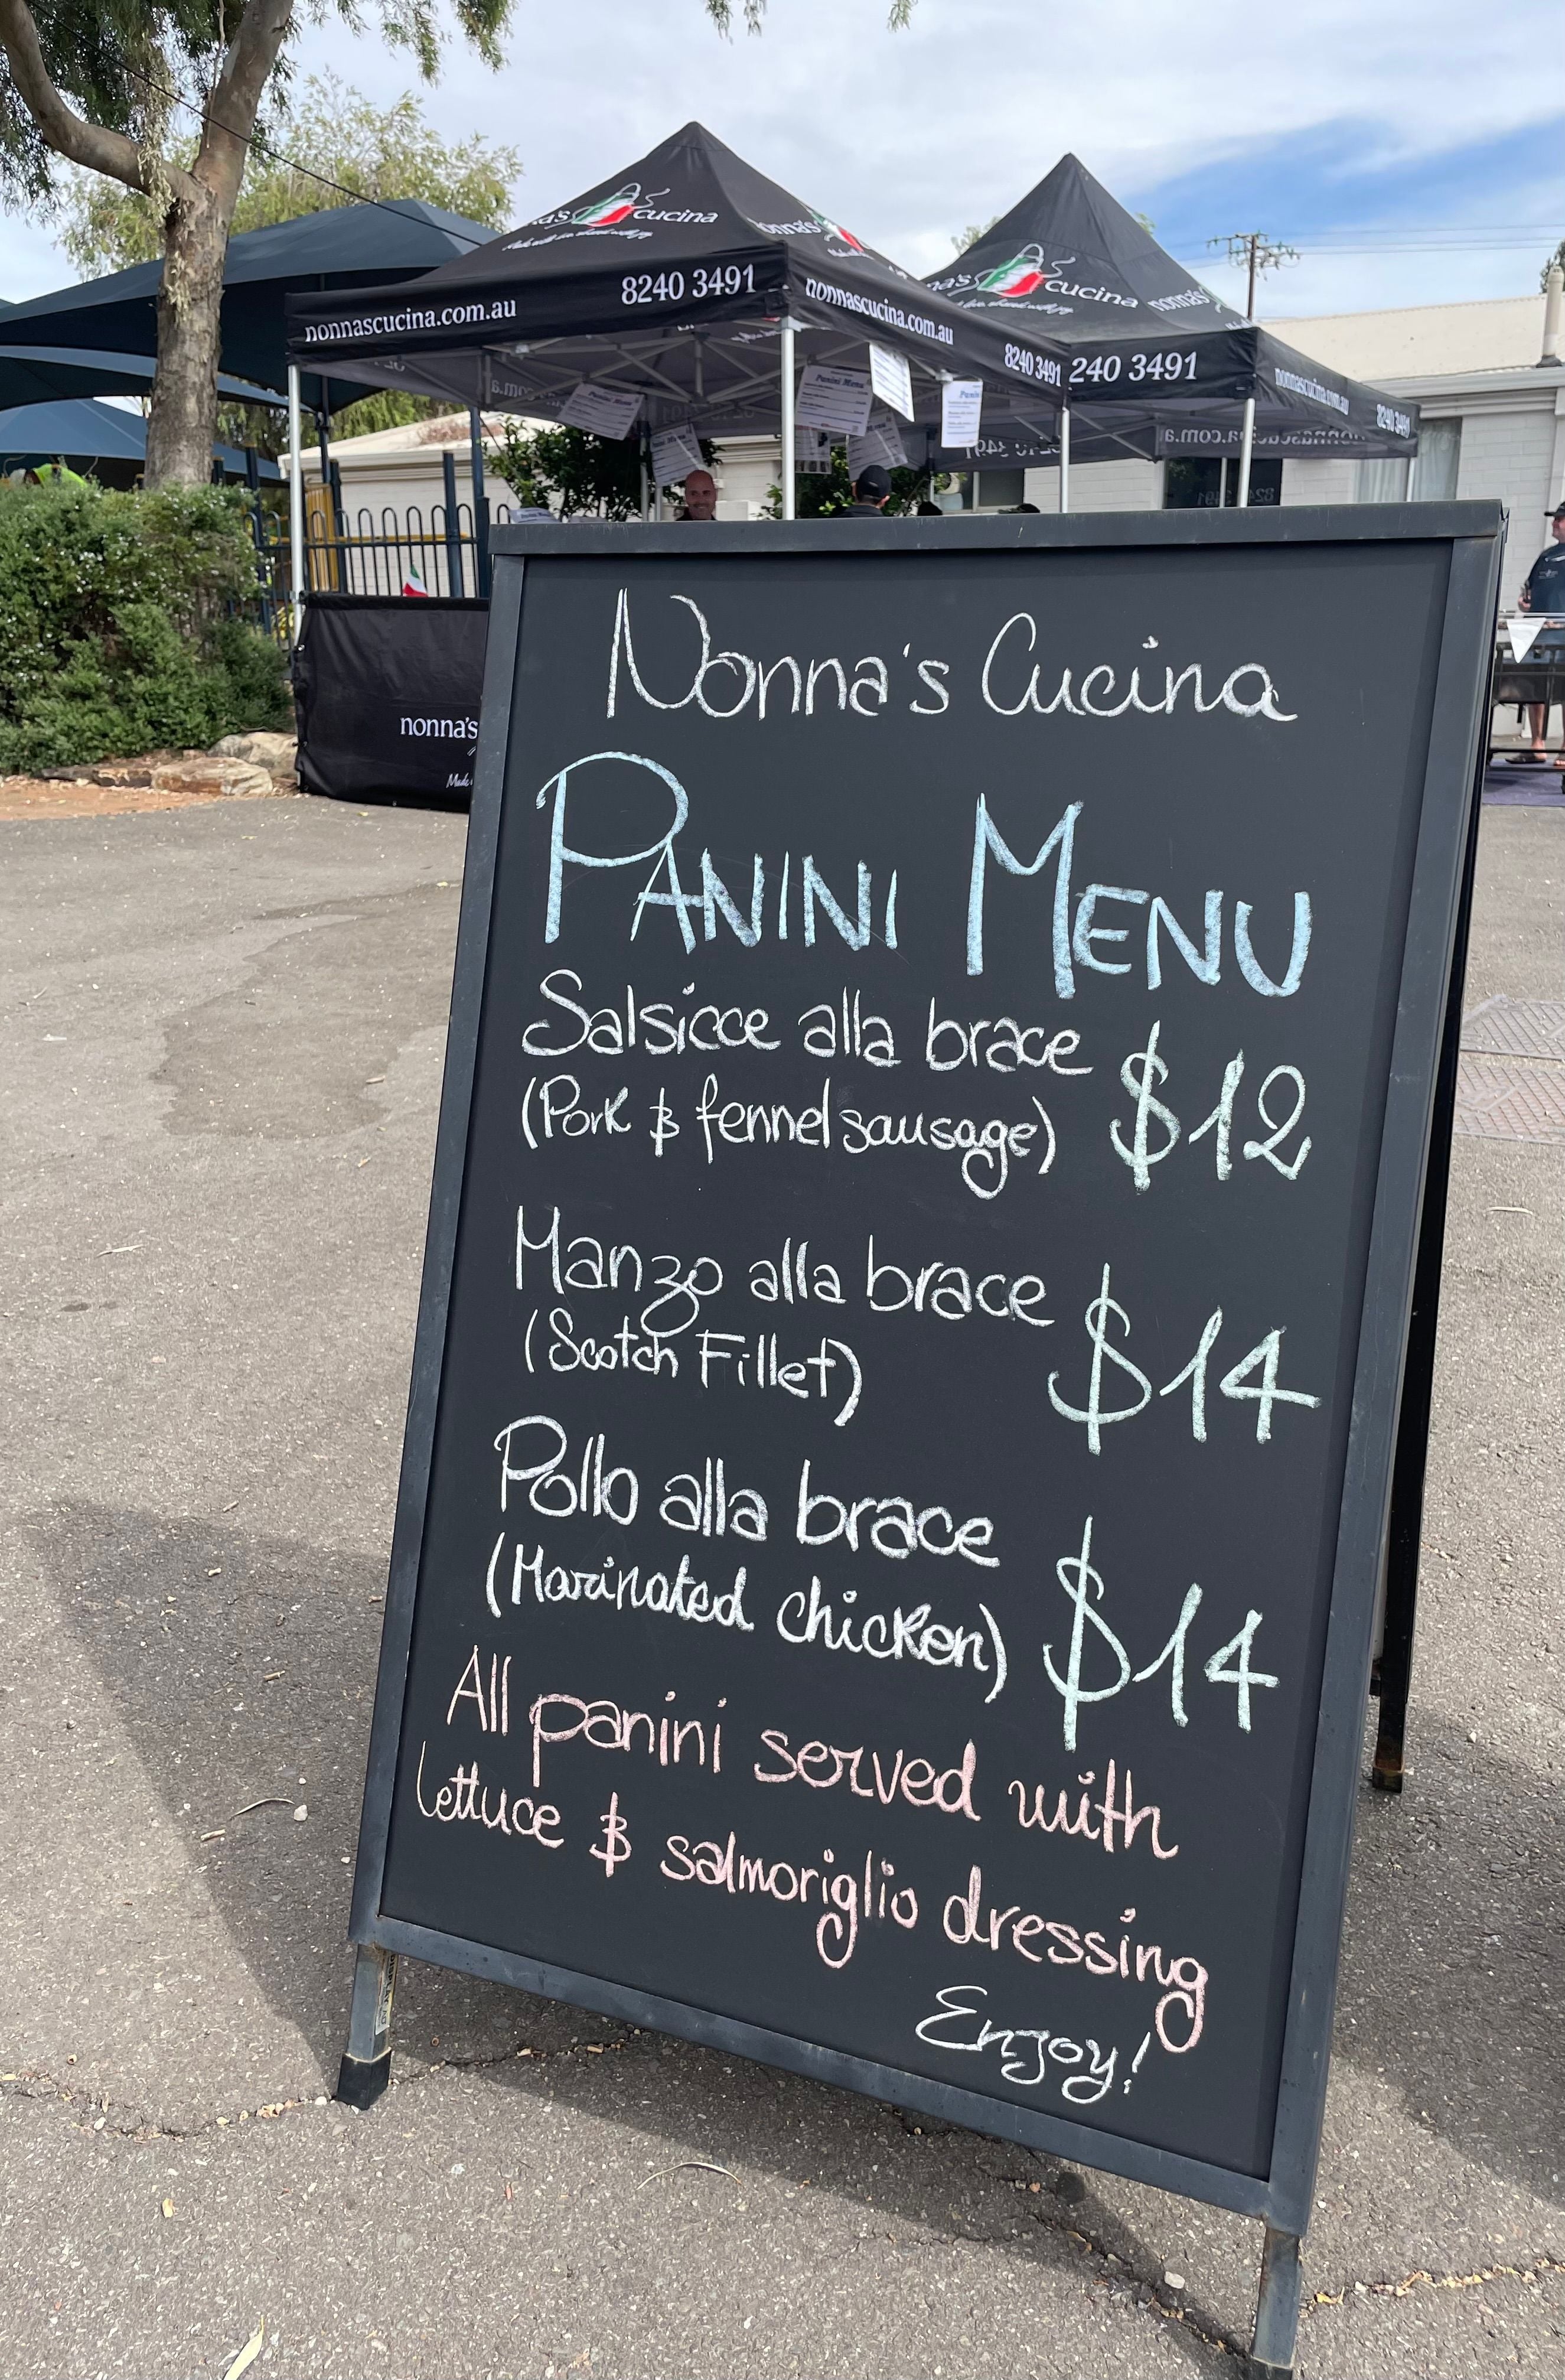 cucina
nonna's
cucina
nonna's
8240 3491
nonnascucina.com.au
nonnascucina.com.au
8240 3491
240 3491
nonnascucina.com.au
8240 3491
Panini Menu
nonna's
Nonna's Cucina
PANINI MENU
Salsicce alla brace
(Pork & fennel sausage) $12
Manzo alla brace
(Scotch Fillet) $14
Pollo alla brace
(Marinated chicken) $14
All panini served with
lettuce & salmoriglio dressing
Enjoy!